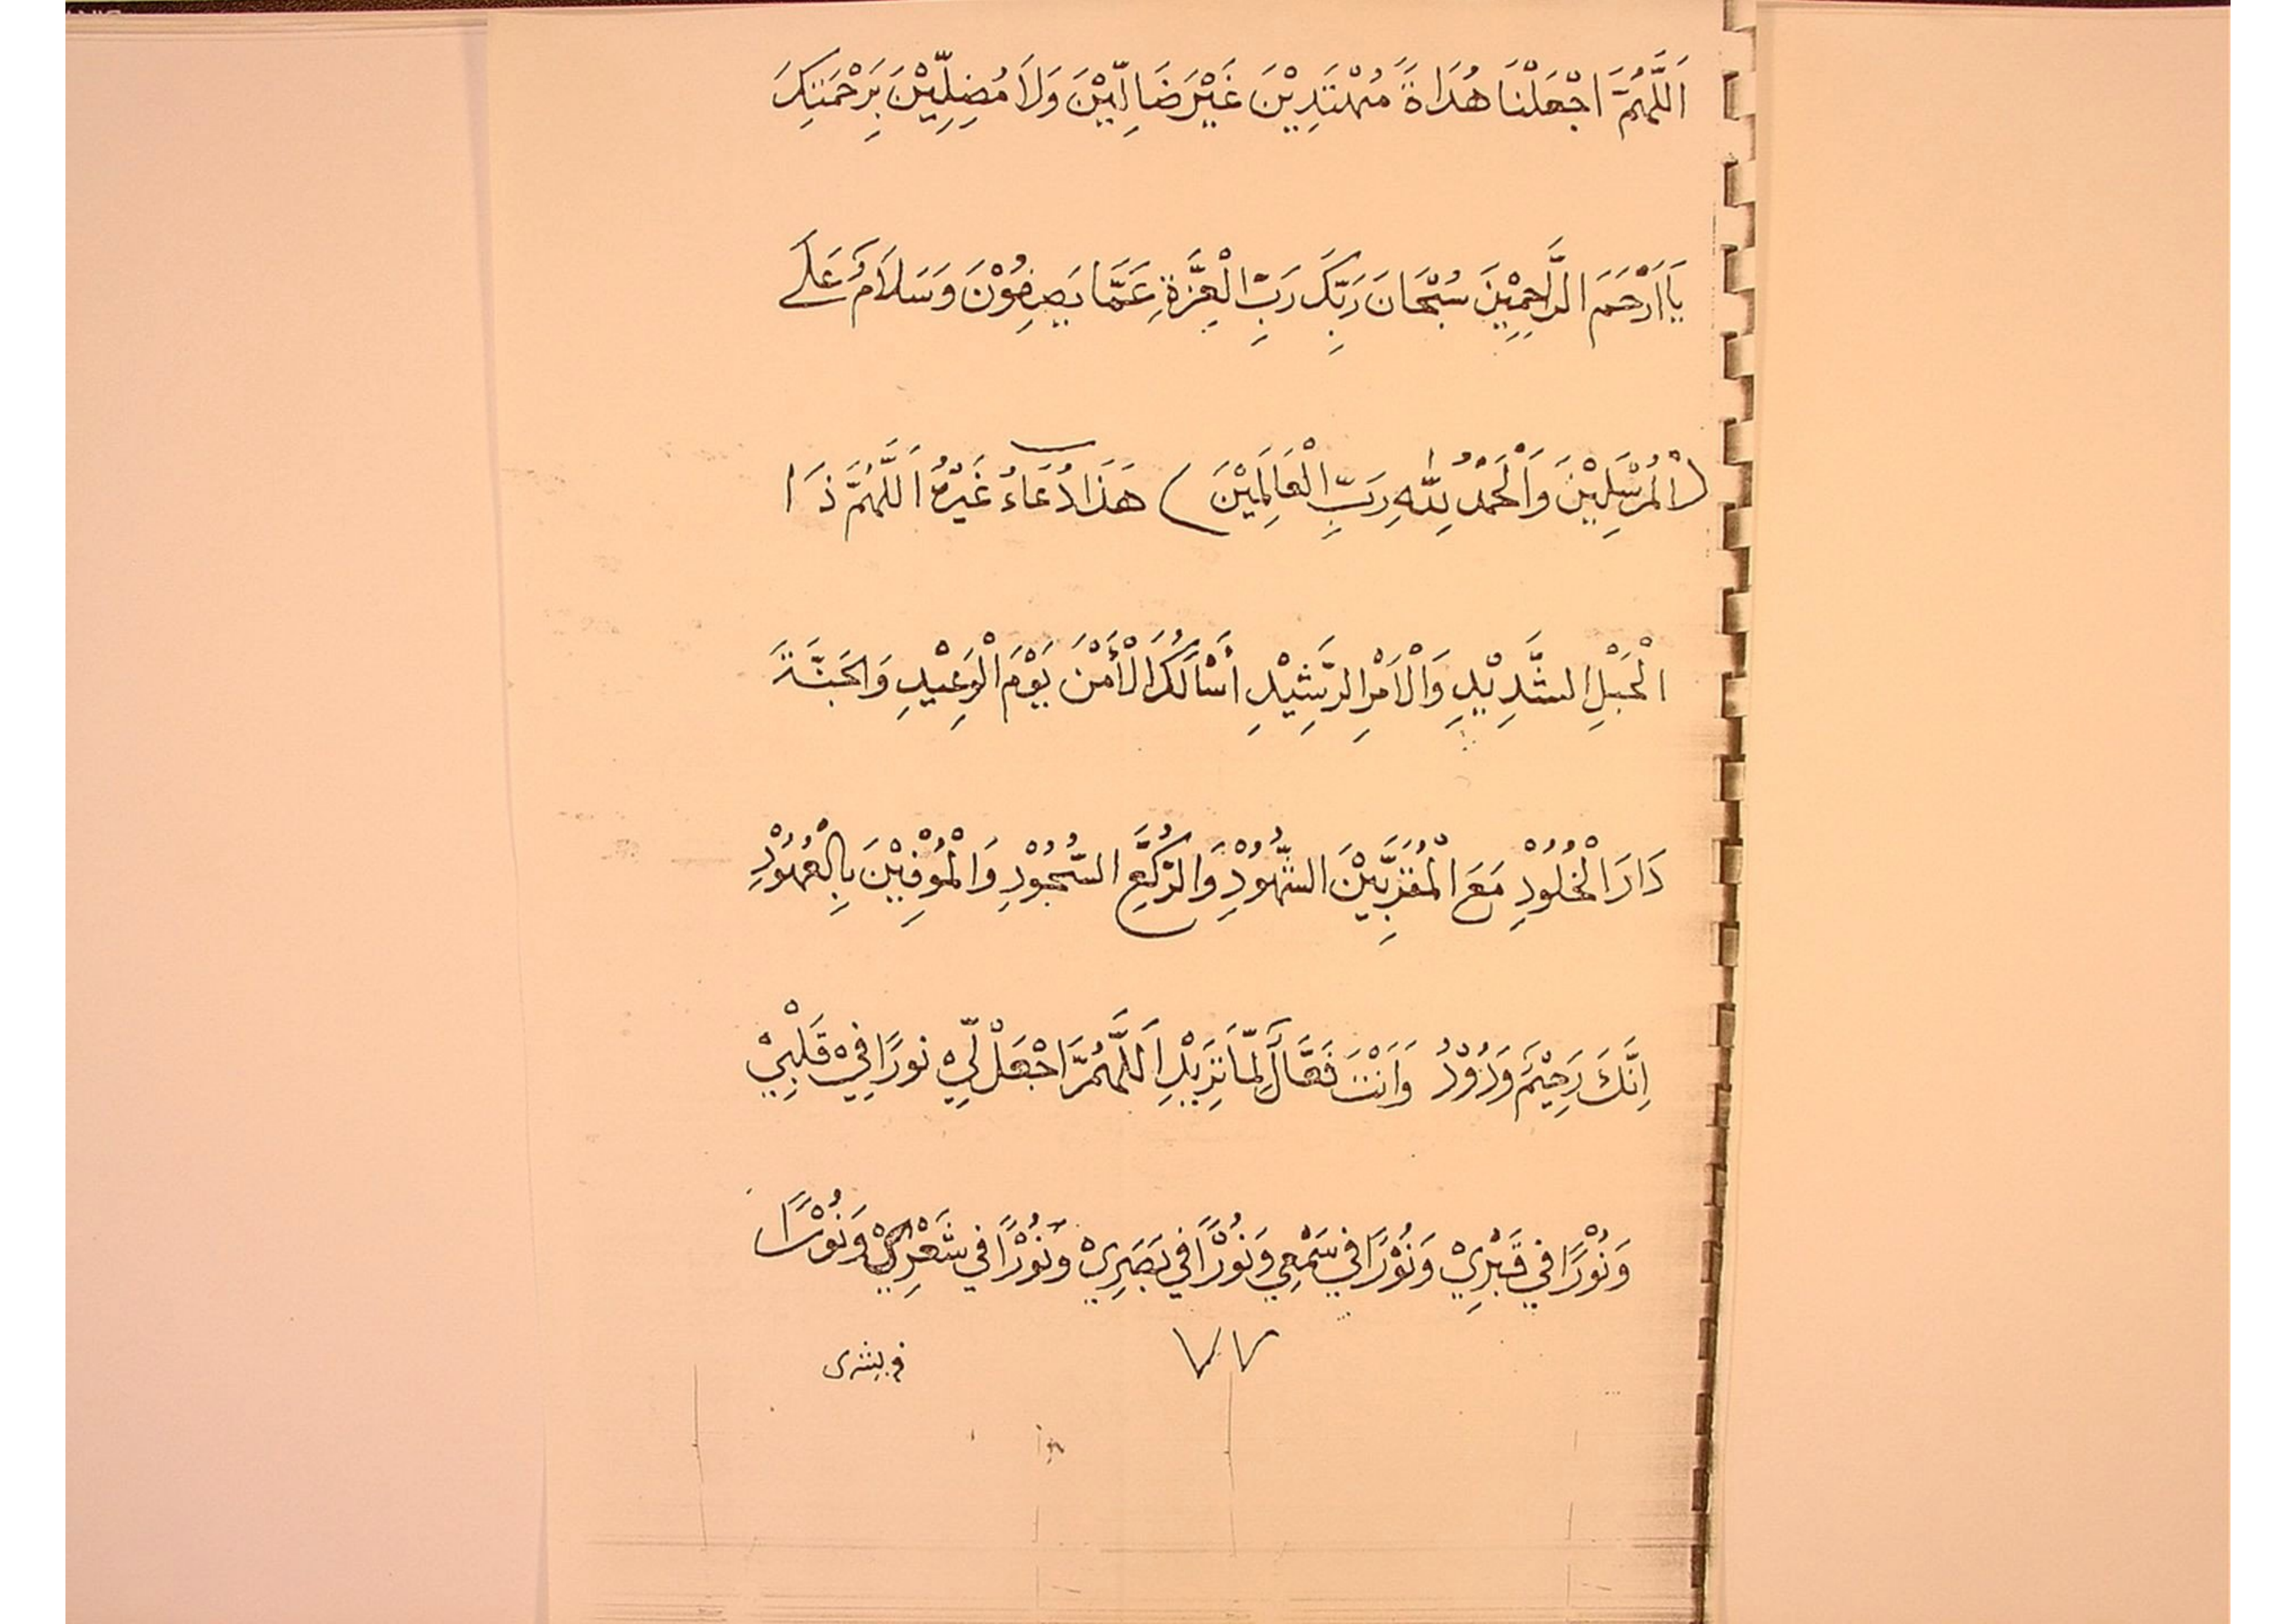 اَللَّهُمَّ اجْعَلْنَا هُدَاةً مُهْتَدِيْنَ غَيْرَ ضَالِّيْنَ وَلَا مُضِلِّيْنَ بِرَحْمَتِكَ
يَا اَرْحَمَ الرَّاحِمِيْنَ سُبْحَانَ رَبِّكَ رَبِّ الْعِزَّةِ عَمَّا يَصِفُوْنَ وَسَلَامٌ عَلَى
(الْمُرْسَلِيْنَ وَالْحَمْدُ لِلّٰهِ رَبِّ الْعَالَمِيْنَ) هَذَا دُعَاءُ غَيْرُهُ اَللَّهُمَّ ذَا
الْحَبْلِ الشَّدِيْدِ وَالْاَمْرِ الرَّشِيْدِ اَسْأَلُكَ الْأَمْنَ يَوْمَ الْوَعِيْدِ وَالْجَنَّةَ
دَارَ الْخُلُوْدِ مَعَ الْمُقَرَّبِيْنَ الشُّهُوْدِ وَالرُّكَّعِ السُّجُوْدِ وَالْمُوْفِيْنَ بِالْعُهُوْدِ
اِنَّكَ رَحِيْمٌ وَدُوْدُ وَاَنْتَ فَعَّالٌ لِمَّا تُرِيْدِ اَللَّهُمَّ اجْعَلْ لِّيْ نورًا فِيْ قَلْبِيْ
وَنُوْرًا فِي قَبْرِيْ وَنُوْرًا فِي سَمْعِي وَنُوْرًا فِي بَصَرِيْ وَنُوْرًا فِي شَعْرِيْ وَنُوْرًا
٧٧
في بشرى